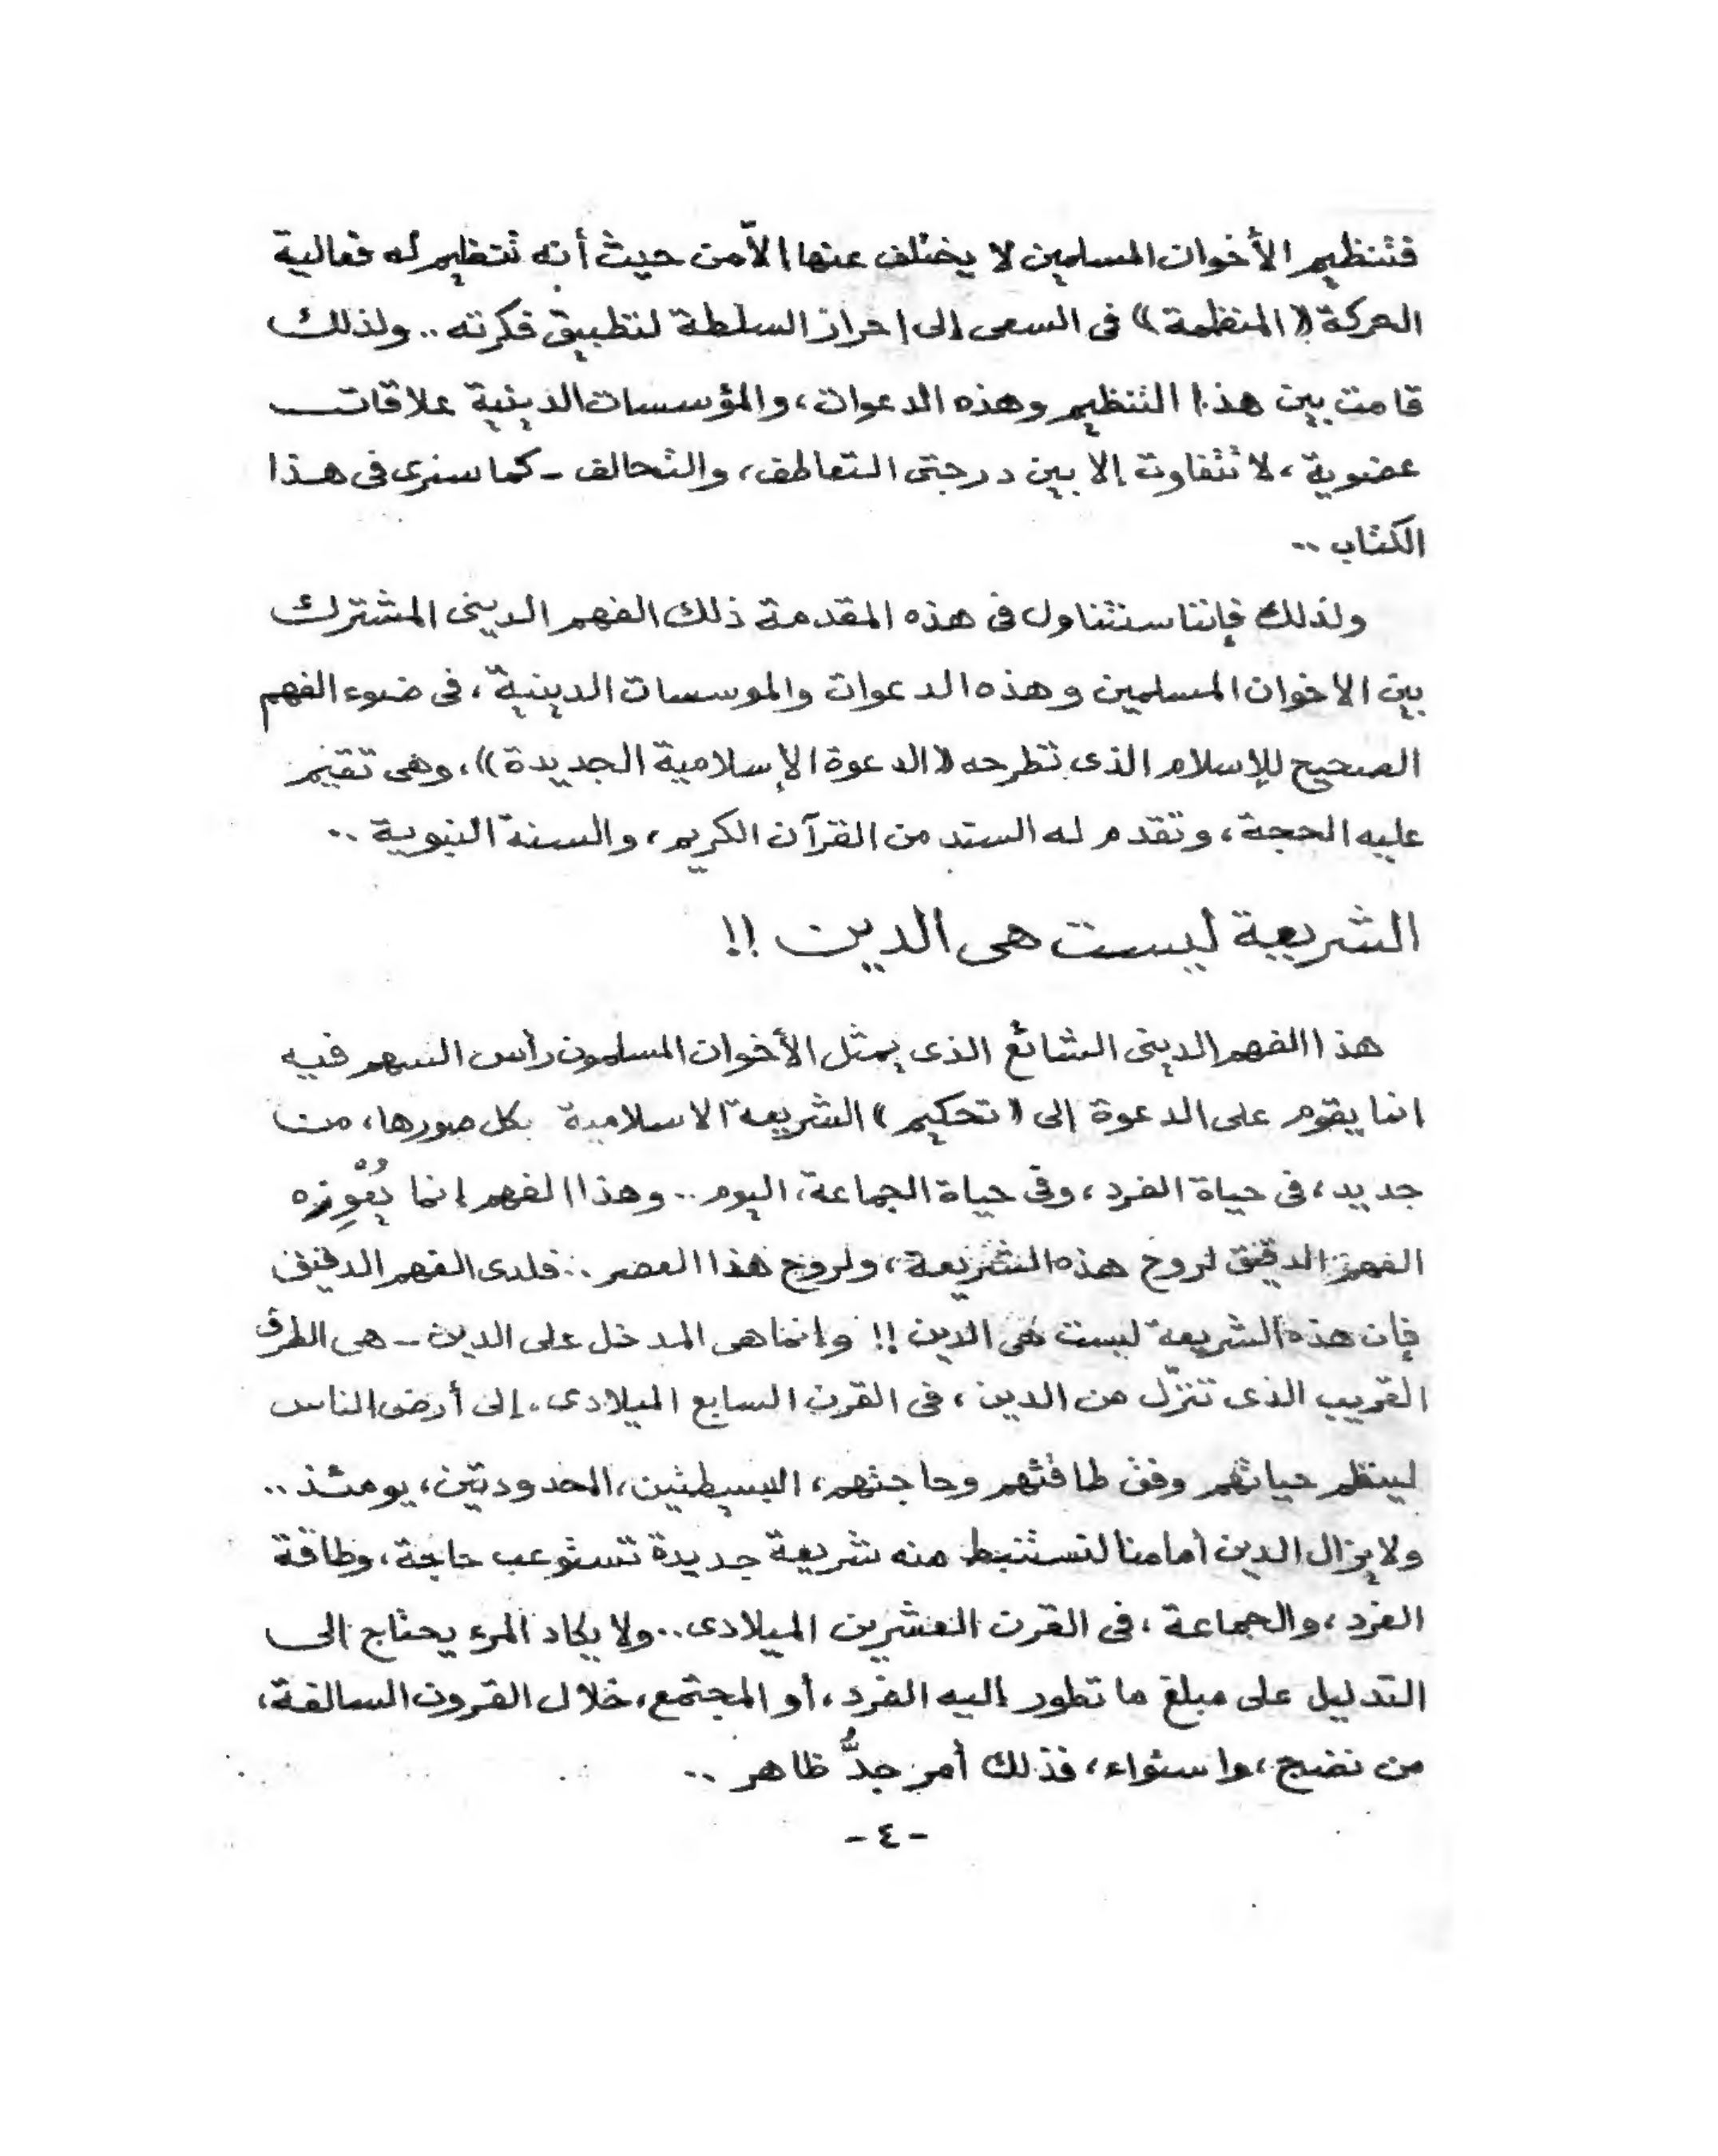 فتنظيم الأخوان المسلمين لا يختلف عنها الاّ من حيث أنه تنظيم له فعالية
الحركة ((المنظمة)) فى السعى إلى احراز السلطة لتطبيق فكرته .. ولذلك
قامت بين هذا التنظيم وهذه الدعوات، والمؤسسات الدينية علاقات
عضوية، لا تتفاوت إلا بين درجتى التعاطف، والتحالف - كما سنرى فى هذا
الكتاب ..
ولذلك فإننا سنتناول فى هذه المقدمة ذلك الفهم الدينى المشترك
بين الاخوان المسلمين وهذه الدعوات والموسسات الدينية، فى ضوء الفهم
الصحيح للإسلام الذى تطرحه ((الدعوة الإسلامية الجديدة))، وهى تقيم
عليه الحجة، وتقدم له السند من القرآن الكريم، والسنة النبوية ..
الشريعة ليست هى الدين !!
هذا الفهم الدينى الشائع الذى يمثل الأخوان المسلمون رأس السهم فيه
انما يقوم على الدعوة إلى ((تحكيم)) الشريعة الاسلامية بكل صورها، من
جديد، فى حياة الفرد، وفى حياة الجماعة، اليوم .. وهذا الفهم إنما يُعْوِزُه
الفهم الدقيق لروح هذه الشريعة، ولروح هذا العصر .. فلدى الفهم الدقيق
فإن هذه الشريعة ليست هى الدين !! وانما هى المدخل على الدين - هى الطرف
القريب الذى تنزّل من الدين، فى القرن السابع الميلادى، إلى أرض الناس
لينظم حياتهم وفق طاقتهم وحاجتهم، البسيطتين، المحدودتين، يومئذ ..
ولا يزال الدين أمامنا لنستنبط منه شريعة جديدة تستوعب حاجة، وطاقة
الفرد، والجماعة، فى القرن العشرين الميلادى .. ولا يكاد المرء يحتاج إلى
التدليل على مبلغ ما تطور إليه الفرد، أو المجتمع، خلال القرون السالفة،
من نضج، واستواء، فذلك أمر جدُّ ظاهر ..
- ٤ -